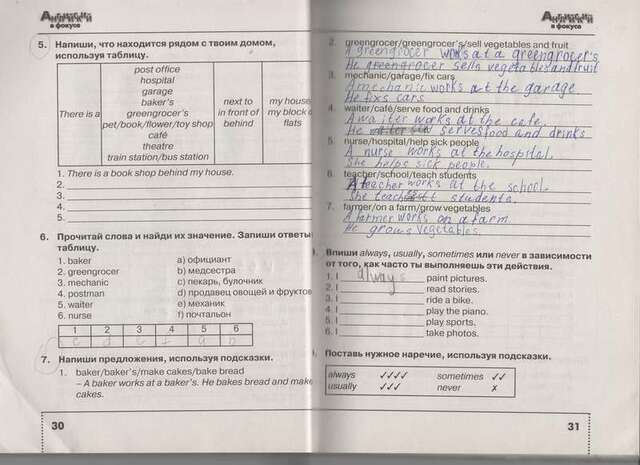 Английский
в фокусе
5. Напиши, что находится рядом с твоим домом,
используя таблицу.
There is a
post office
hospital
garage
baker's
greengrocer's
pet/book/flower/toy shop
café
theatre
train station/bus station
next to
in front of
behind
my house
my block o
flats
1. There is a book shop behind my house.
2.
3.
4.
5.
6. Прочитай слова и найди их значение. Запиши ответы
таблицу.
1. baker a) официант
2. greengrocer b) медсестра
3. mechanic c) пекарь, булочник
4. postman d) продавец овощей и фруктов
5. waiter e) механик
6. nurse f) почтальон
1 2 3 4 5 6
c d e f a b
7. Напиши предложения, используя подсказки.
1. baker/baker's/make cakes/bake bread
– A baker works at a baker's. He bakes bread and make
cakes.
30
в фокусе
2. greengrocer/greengrocer's/sell vegetables and fruit
A greengrocer works at a greengrocer's
He greengrocer sells vegetables and fruit
3. mechanic/garage/fix cars
A mechanic works at the garage.
He fixs cars.
4. waiter/café/serve food and drinks
A waiter works at the cafe.
He serves food and drinks
5. nurse/hospital/help sick people
A nurse works at the hospital.
She helps sick people.
6. teacher/school/teach students
A teacher works at the school.
She students.
7. farmer/on a farm/grow vegetables
A farmer works on a farm.
He grows vegetables.
Впиши always, usually, sometimes или never в зависимости
от того, как часто ты выполняешь эти действия.
1. I always paint pictures.
2. I read stories.
3. I ride a bike.
4. I play the piano.
5. I play sports.
6. I take photos.
Поставь нужное наречие, используя подсказки.
always ✓✓✓✓ sometimes ✓✓
usually ✓✓✓ never ✗
31